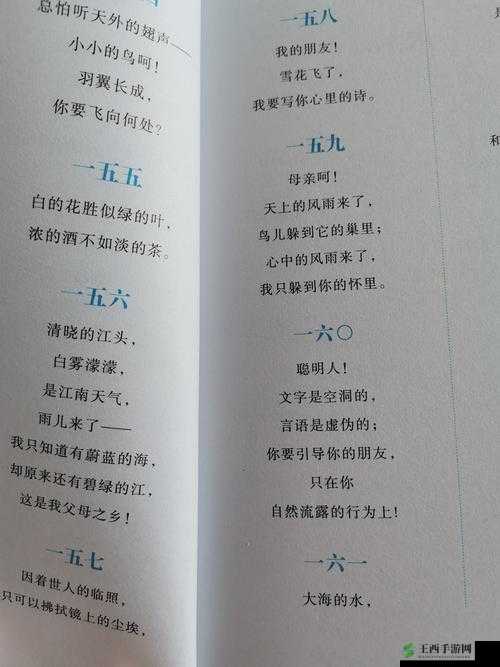 忌怕听天外的翅声——
小小的鸟呵!
羽翼长成,
你要飞向何处?
一五五
白的花胜似绿的叶,
浓的酒不如淡的茶。
一五六
清晓的江头,
白雾濛濛,
是江南天气,
雨儿来了——
我只知道有蔚蓝的海,
却原来还有碧绿的江,
这是我父母之乡!
一五七
因着世人的临照,
只可以拂拭镜上的尘埃,
一五八
我的朋友!
雪花飞了,
我要写你心里的诗。
一五九
母亲呵!
天上的风雨来了,
鸟儿躲到它的巢里;
心中的风雨来了,
我只躲到你的怀里。
一六〇
聪明人!
文字是空洞的,
言语是虚伪的;
你要引导你的朋友,
只在你
自然流露的行为上!
一六一
大海的水,
王西手游网